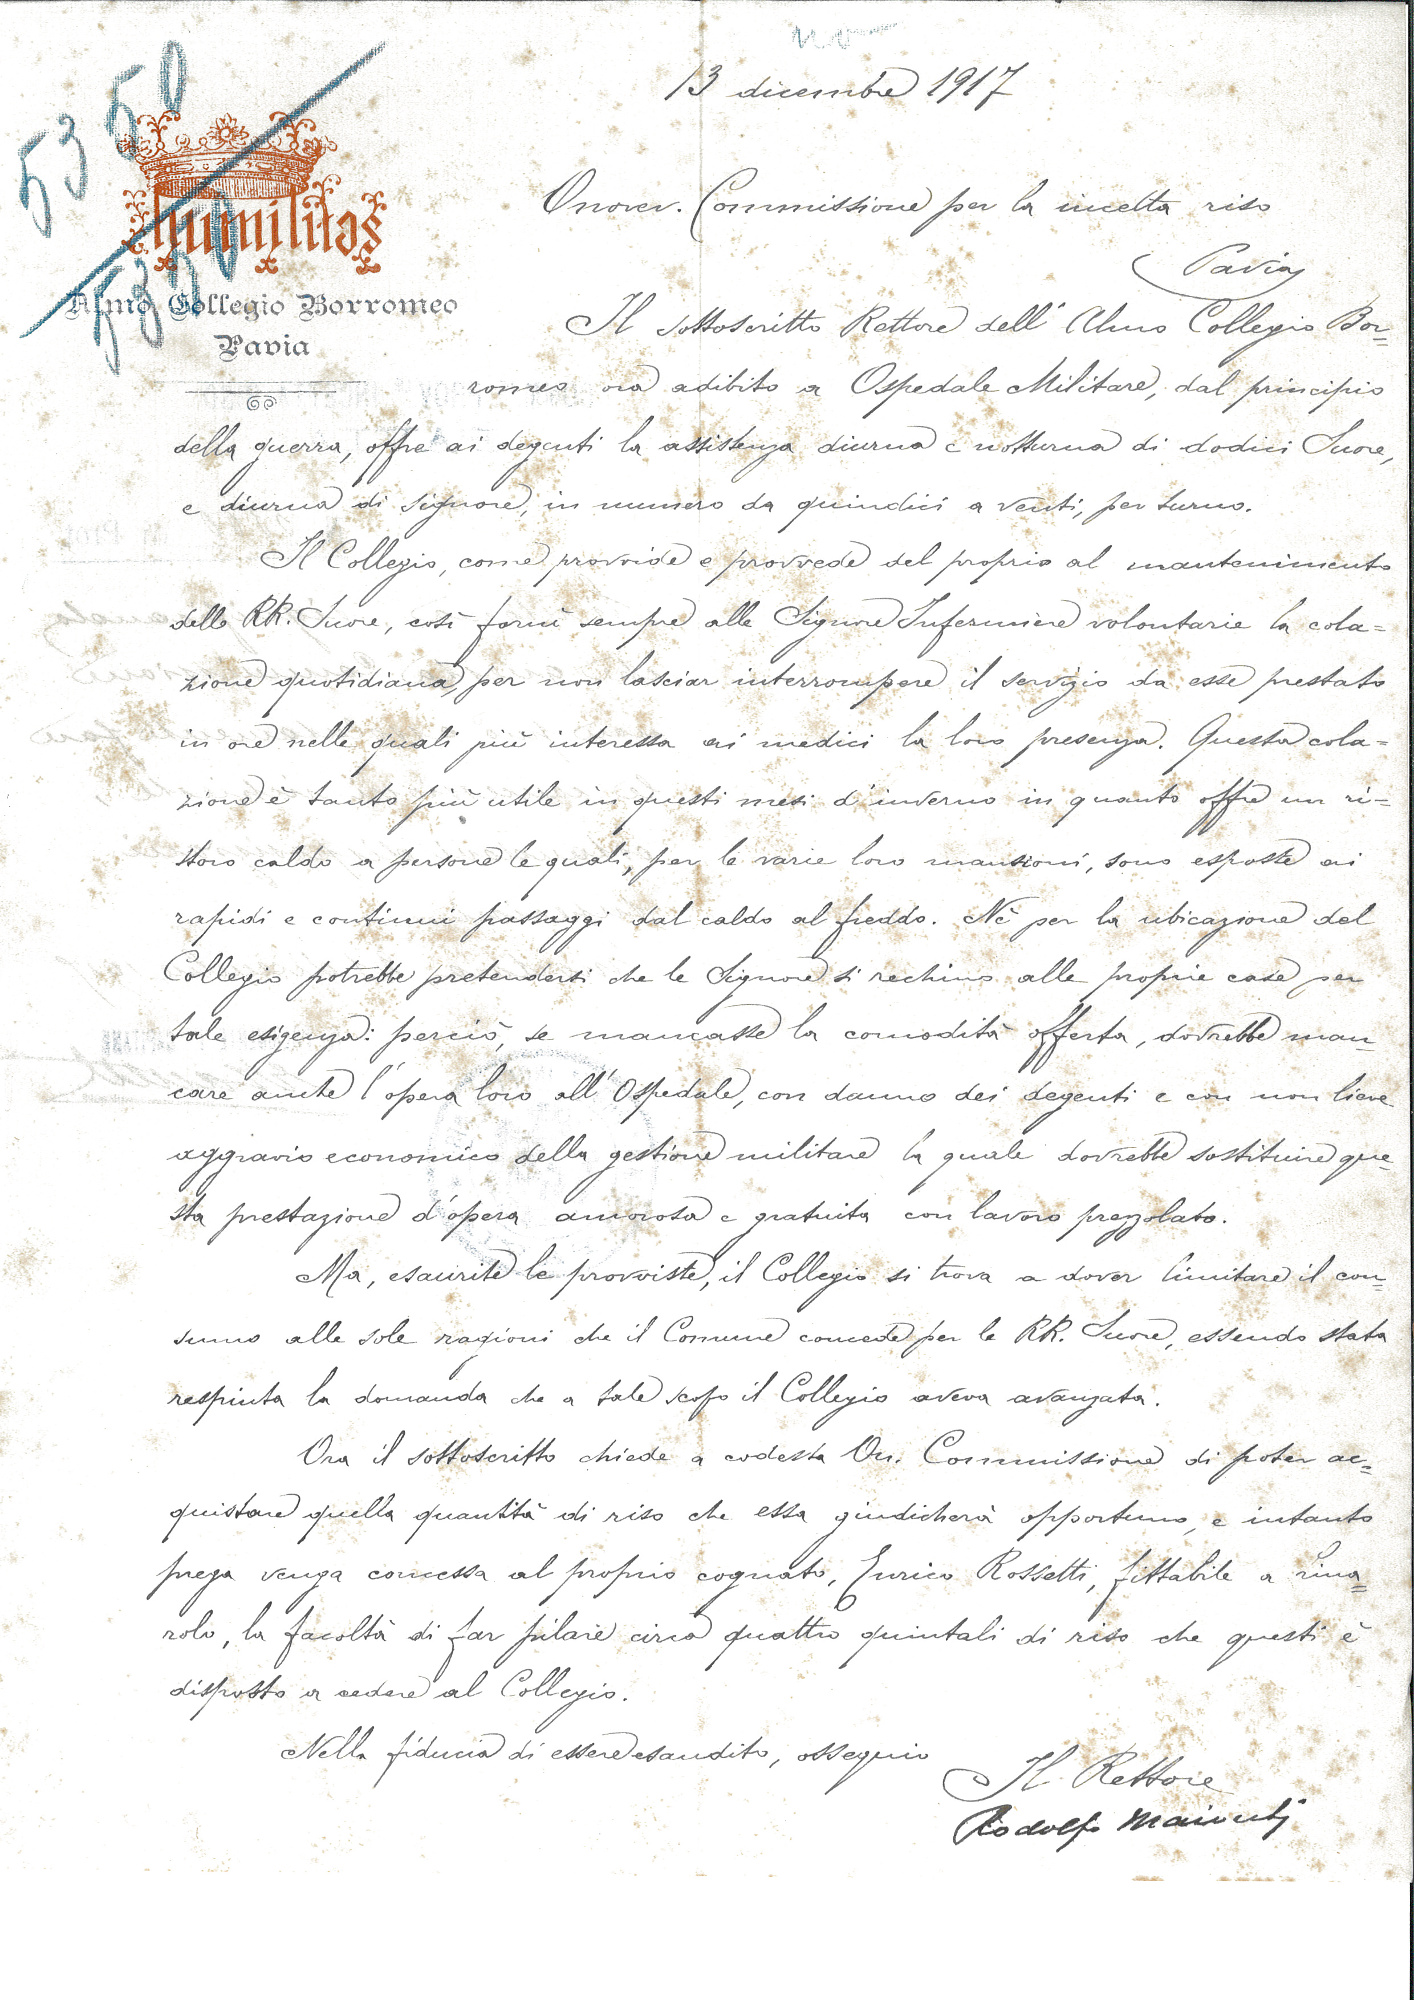 no
13 dicembre 1917
5350
humilitas
5350
Almo Collegio Borromeo
Pavia
Onorev. Commissione per la incetta riso
Pavia
Il sottoscritto Rettore dell' Almo Collegio Bor=
romeo ora adibito a Ospedale Militare, dal principio
della guerra, offre ai degenti la assistenza diurna e notturna di dodici Suore,
e diurna di signore, in numero da quindici a venti, per turno.
Il Collegio, come provvide e provvede del proprio al mantenimento
delle RR. Suore, così fornì sempre alle Signore Infermiere volontarie la cola=
zione quotidiana, per non lasciar interrompere il servizio da esse prestato
in ore nelle quali più interessa ai medici la loro presenza. Questa cola=
zione è tanto più utile in questi mesi d'inverno in quanto offre un ri=
storo caldo a persone le quali, per le varie loro mansioni, sono esposte ai
rapidi e continui passaggi dal caldo al freddo. Nè per la ubicazione del
Collegio potrebbe pretendersi che le Signore si rechino alle proprie case per
tale esigenza: perciò, se mancasse la comodità offerta, dovrebbe man=
care anche l'opera loro all'Ospedale, con danno dei degenti e con non lieve
aggravio economico della gestione militare la quale dovrebbe sostituire que=
sta prestazione d'opera amorosa e gratuita con lavoro prezzolato.
Ma, esaurite le provviste, il Collegio si trova a dover limitare il con=
sumo alle sole razioni che il Comune concede per le RR. Suore, essendo stata
respinta la domanda che a tale scopo il Collegio aveva avanzata.
Ora il sottoscritto chiede a codesta On. Commissione di poter ac=
quistare quella quantità di riso che essa giudicherà opportuno, e intanto
prega venga concessa al proprio cognato, Enrico Rossetti, fittabile a Lina=
rolo, la facoltà di far pilare circa quattro quintali di riso che questi è
disposto a cedere al Collegio.
Nella fiducia di essere esaudito, ossequio
Il Rettore
Rodolfo Maiocchi